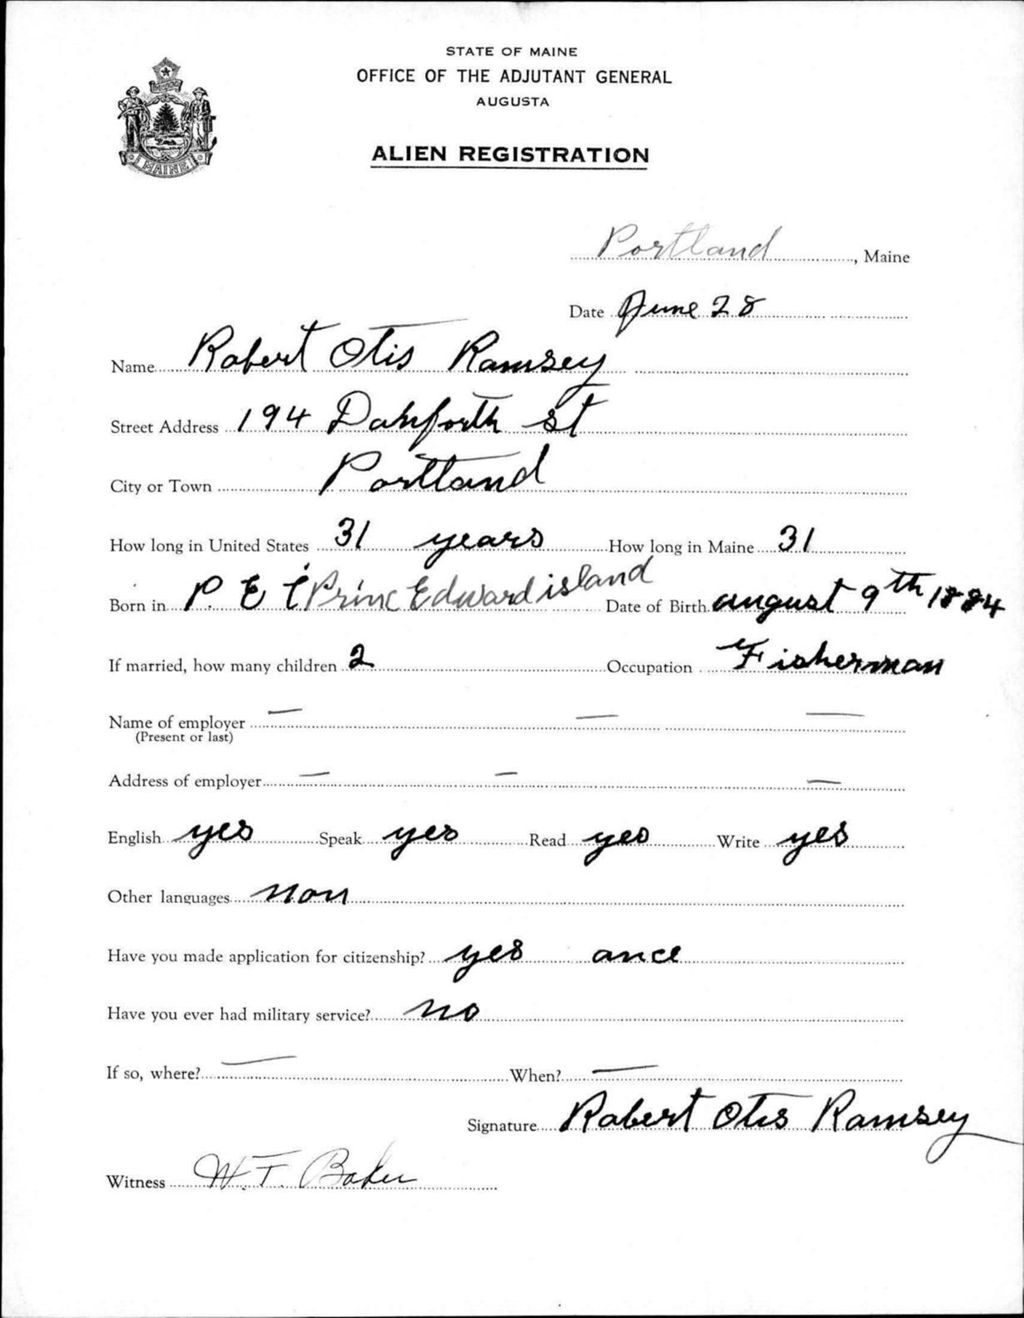 STATE OF MAINE
OFFICE OF THE ADJUTANT GENERAL
AUGUSTA
ALIEN REGISTRATION
MAINE
Portland, Maine
Date June 28
Name Robert Otis Ramsey
Street Address 194 Danforth St
City or Town Portland
How long in United States 31 years How long in Maine 31
Born in P. E I Princ Edward island Date of Birth august 9th 1884
If married, how many children 2 Occupation Fisherman
Name of employer — — —
(Present or last)
Address of employer — — —
English yes Speak yes Read yes Write yes
Other languages non
Have you made application for citizenship? yes once
Have you ever had military service? no
If so, where? — When? —
Signature Robert Otis Ramsey
Witness W. T. Baker